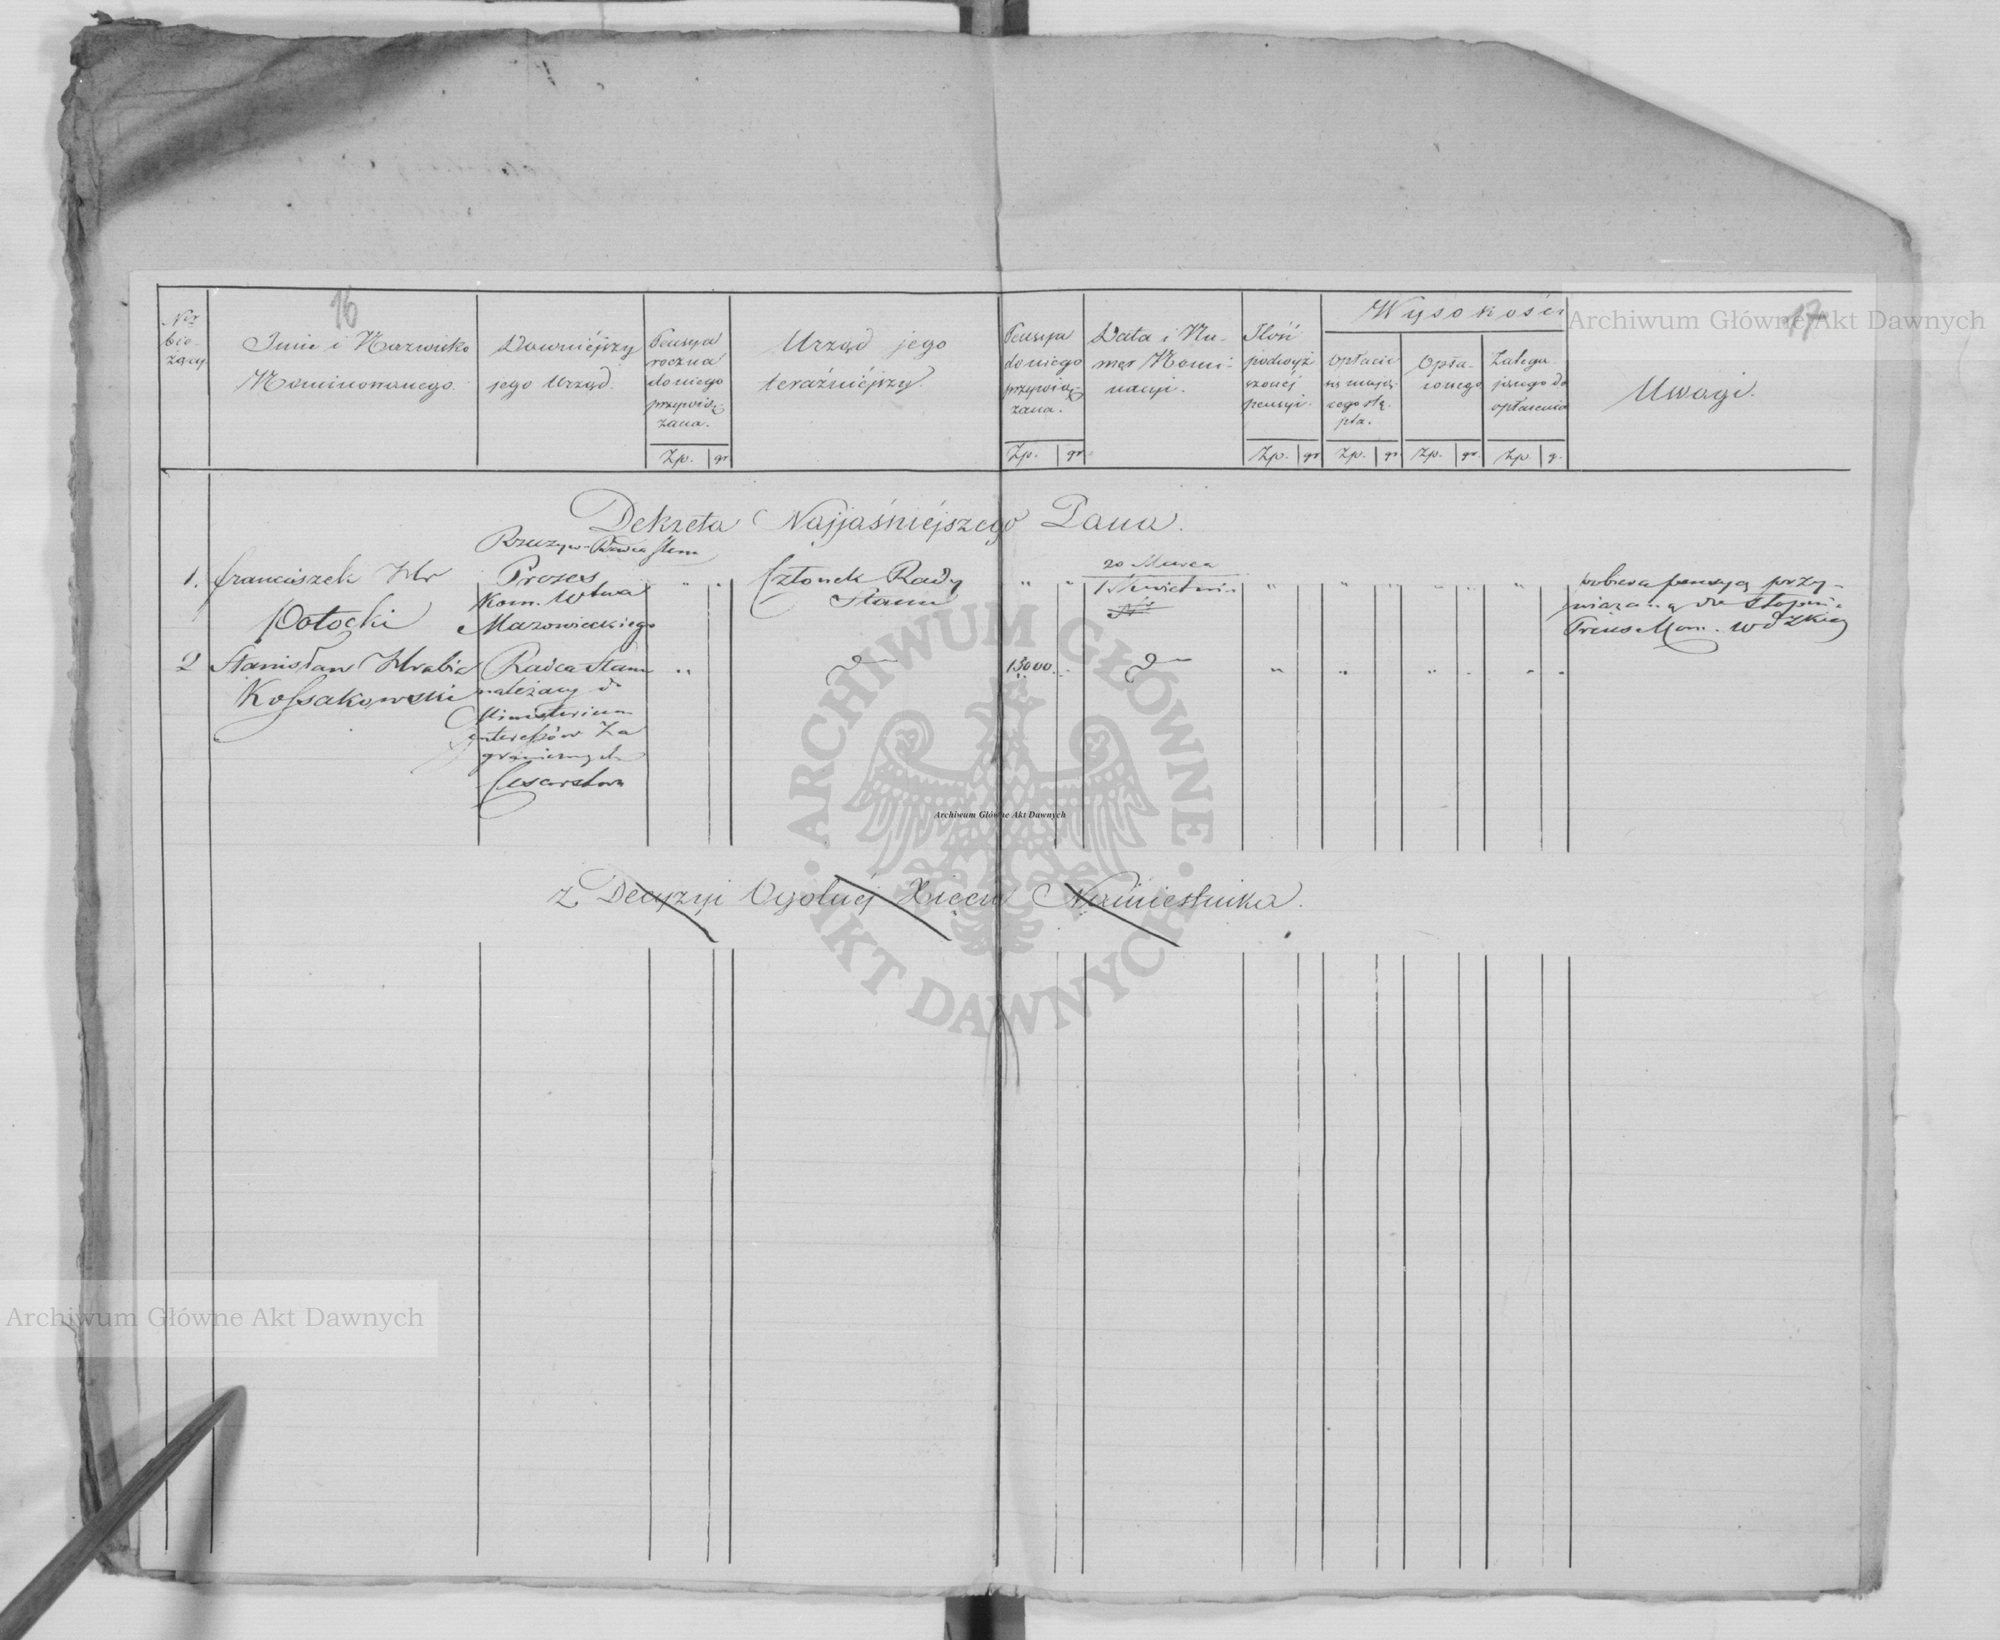 16
17
Nr bieżący
Imie i Nazwisko Nominowanego.
Dawniéjszy jego Urząd.
Pensya roczna do niego przywiązana.
Zp. gr
Urząd jego teraźniéjszy.
Pensya do niego przywiązana.
Zp. gr
Data i Numer Nominacyi.
Ilość podwyższonéj pensyi.
Zp. gr
Wysokość
opłacie
cego stępla.
Zp. gr
opłaconego
Zp. gr
Zalegającego do opłacenia
Zp g.
Uwagi.
Dekreta Najjaśniejszego Pana.
1. Franciszek Hr Potocki
Rzeczyw. Radca Stanu
Prezes
Kom. Wtwa
Mazowieckiego
Członek Rady
Stanu
20 Marca
1 Kwietnia
Nr
pobiera pensyą przy-
wiązaną do stopnia
Prezesa Kom. Wdzkiej
2 Stanisław Hrabia
Kossakowski
Radca Stanu
należący do
Ministerium
interessów Za
granicznych
Cesarstwa
15000
Z Decyzyi Ogólnéj Xięcia Namiestnika.
Archiwum Główne Akt Dawnych
ARCHIWUM GŁÓWNE AKT DAWNYCH
Archiwum Główne Akt Dawnych
Archiwum Główne Akt Dawnych